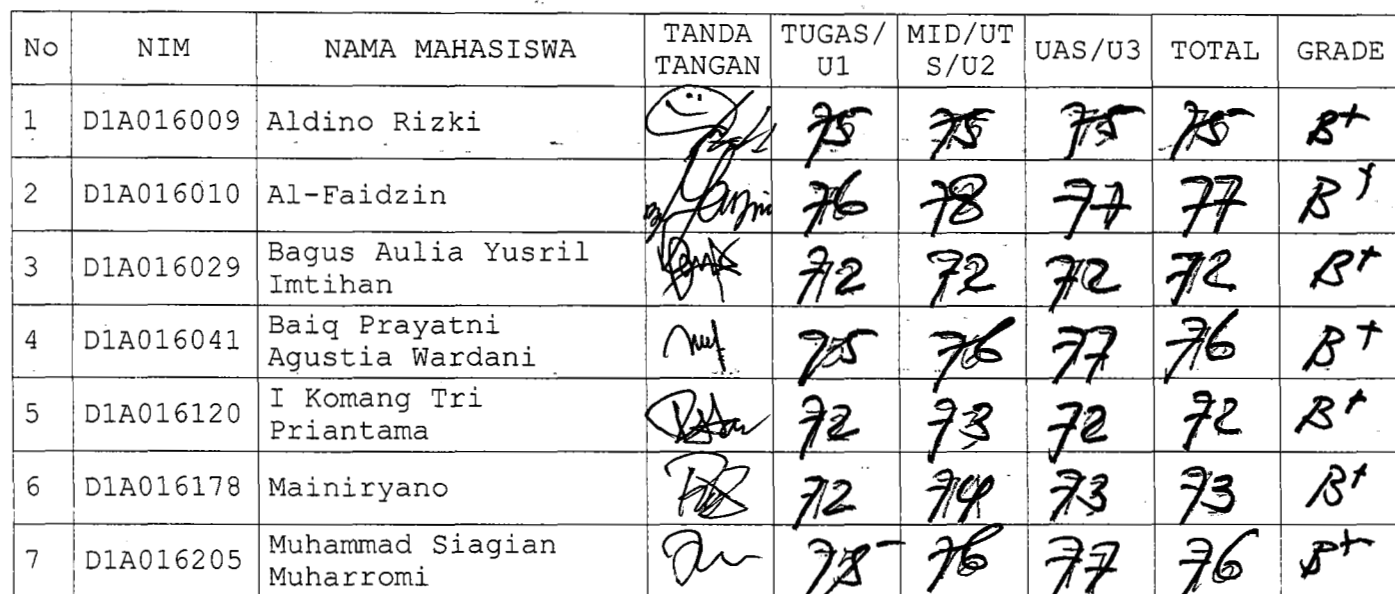 No NIM NAMA MAHASISWA TANDA TANGAN TUGAS/ U1 MID/UT S/U2 UAS/U3 TOTAL GRADE
1 D1A016009 Aldino Rizki 75 75 75 75 B+
2 D1A016010 Al-Faidzin 76 78 77 77 B+
3 D1A016029 Bagus Aulia Yusril Imtihan 72 72 72 72 B+
4 D1A016041 Baiq Prayatni Agustia Wardani 75 76 77 76 B+
5 D1A016120 I Komang Tri Priantama 72 73 72 72 B+
6 D1A016178 Mainiryano 72 74 73 73 B+
7 D1A016205 Muhammad Siagian Muharromi 76 77 76 B+